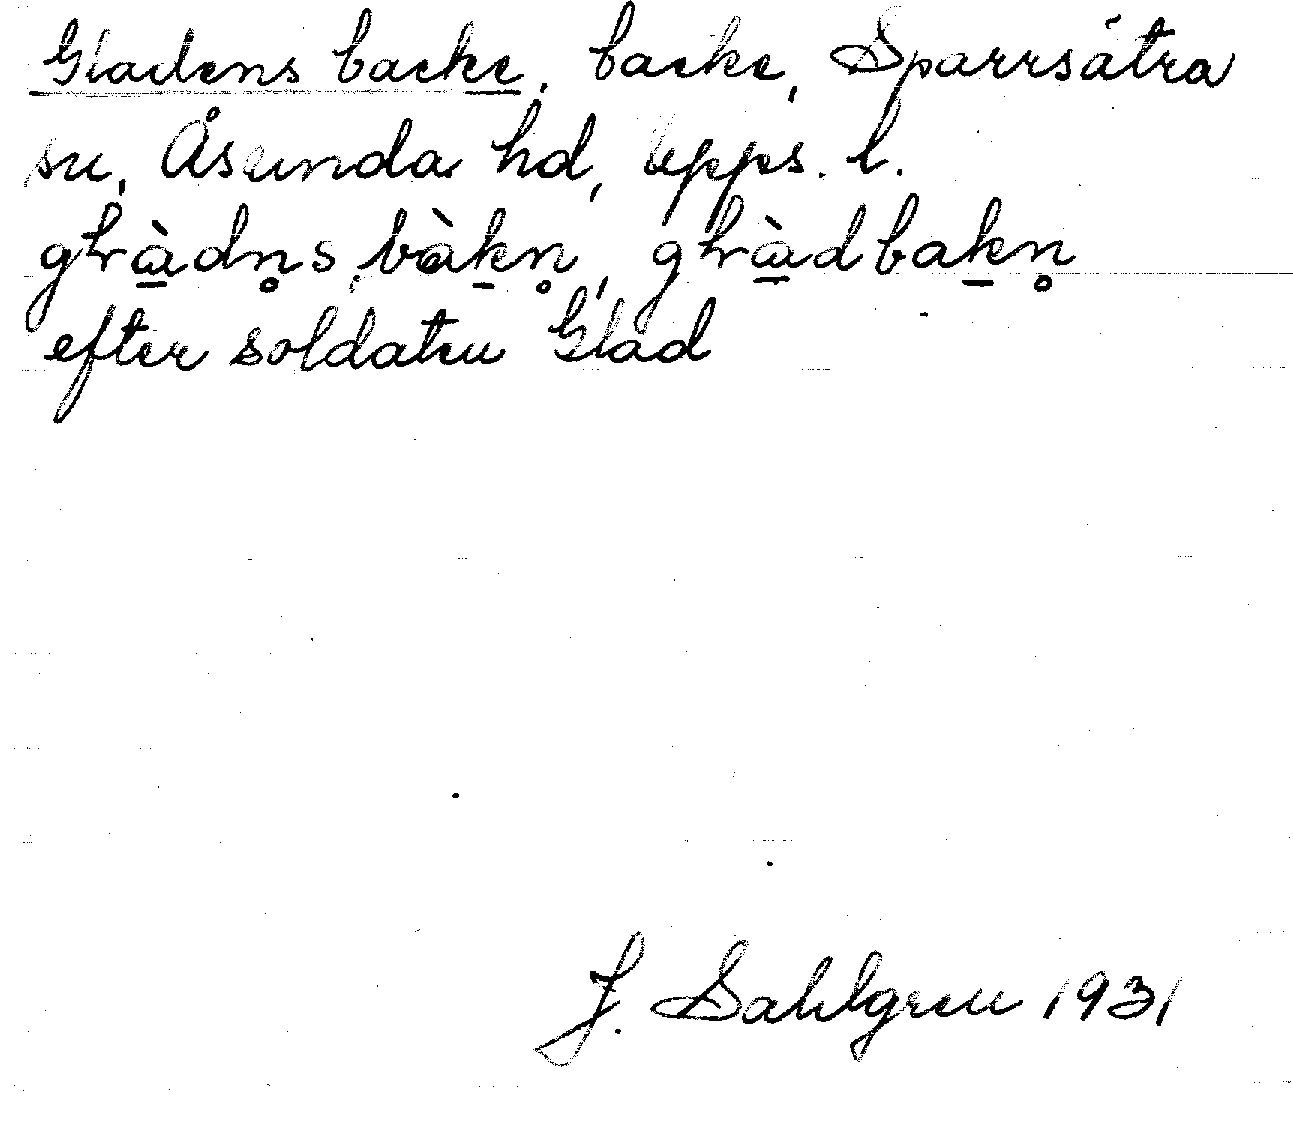 Gladens backe, backe, Sparrsätra
sn, Åsunda hd, Upps. l.
gɫàdn̥s bàkn̥, gɫàdbakn̥
efter soldaten Glad
J. Sahlgren 1931